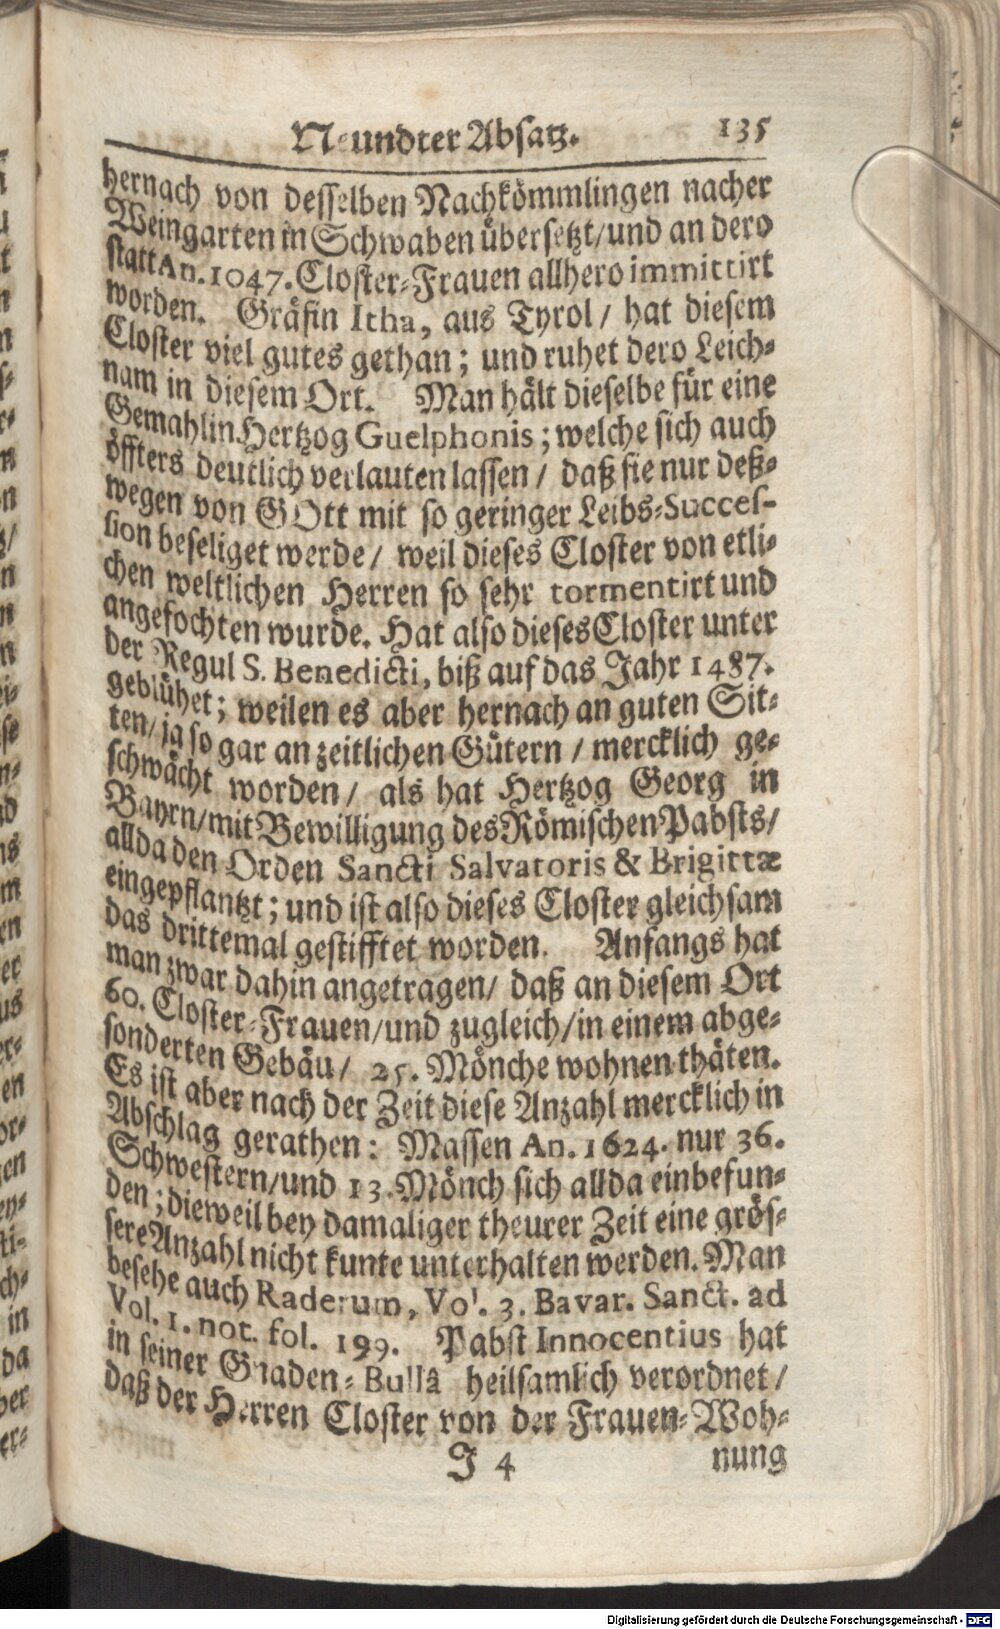 Neundter Absatz. 135
hernach von desselben Nachkömmlingen nacher
Weingarten in Schwaben übersetzt/und an dero
statt An. 1047. Closter-Frauen allhero immittirt
worden. Gräfin Itha, aus Tyrol / hat diesem
Closter viel gutes gethan; und ruhet dero Leich-
nam in diesem Ort. Man hält dieselbe für eine
Gemahlin Hertzog Guelphonis; welche sich auch
öffters deutlich verlauten lassen / daß sie nur deß-
wegen von GOtt mit so geringer Leibs-Succes-
sion beseliget werde / weil dieses Closter von etli-
chen weltlichen Herren so sehr tormentirt und
angefochten wurde. Hat also dieses Closter unter
der Regul S. Benedicti, biß auf das Jahr 1487.
geblühet; weilen es aber hernach an guten Sit-
ten/ ja so gar an zeitlichen Gütern / mercklich ge-
schwächt worden / als hat Hertzog Georg in
Bayrn/mit Bewilligung des Römischen Pabsts/
allda den Orden Sancti Salvatoris & Brigittæ
eingepflantzt; und ist also dieses Closter gleichsam
das drittemal gestifftet worden. Anfangs hat
man zwar dahin angetragen/ daß an diesem Ort
60. Closter-Frauen/und zugleich/in einem abge-
sonderten Gebäu / 25. Mönche wohnen thäten.
Es ist aber nach der Zeit diese Anzahl mercklich in
Abschlag gerathen: Massen An. 1624. nur 36.
Schwestern/und 13. Mönch sich allda einbefun-
den; dieweil bey damaliger theurer Zeit eine grös-
sere Anzahl nicht kunte unterhalten werden. Man
besehe auch Raderum, Vol. 3. Bavar. Sanct. ad
Vol. 1. not. fol. 199. Pabst Innocentius hat
in seiner Gnaden-Bullâ heilsamlich verordnet /
daß der Herren Closter von der Frauen-Woh-
J 4 nung
Digitalisierung gefördert durch die Deutsche Forschungsgemeinschaft - DFG